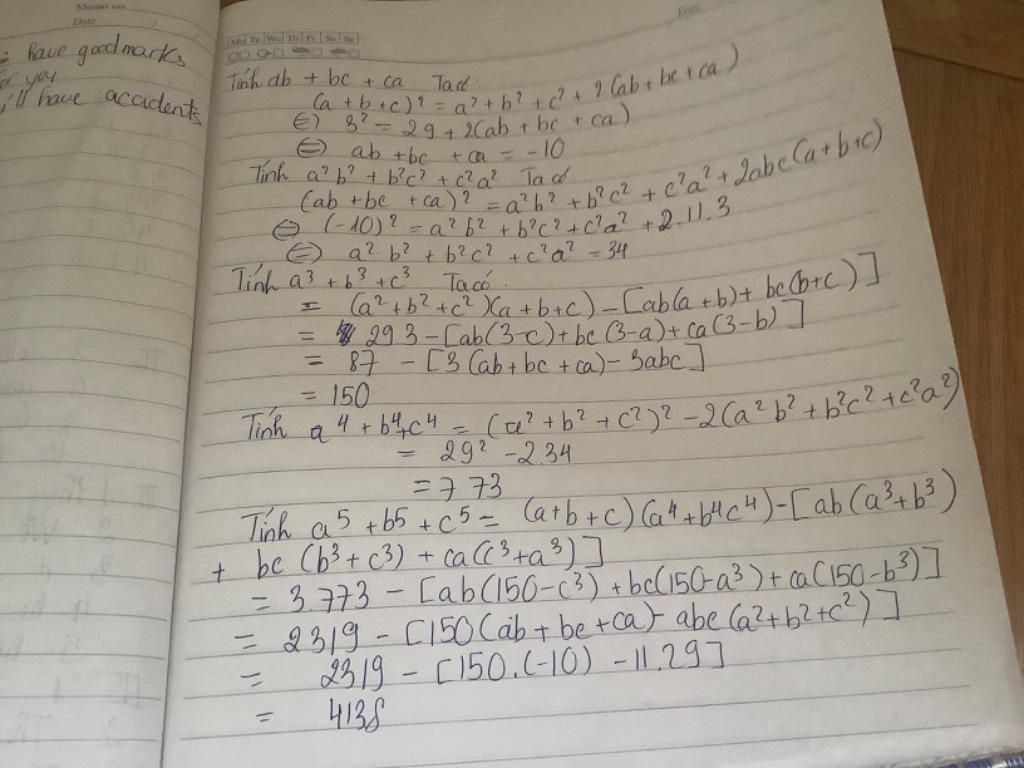 Memo no.
Date
have good marks
or you
'll have accidents
Date
Mo Tu We Th Fr Sa Su
Tính ab + bc + ca Ta có:
(a + b + c)² = a² + b² + c² + 2(ab + bc + ca)
⇔ 3² = 29 + 2(ab + bc + ca)
⇔ ab + bc + ca = -10
Tính a²b² + b²c² + c²a² Ta có
(ab + bc + ca)² = a²b² + b²c² + c²a² + 2abc(a+b+c)
⇔ (-10)² = a²b² + b²c² + c²a² + 2.11.3
⇔ a²b² + b²c² + c²a² = 34
Tính a³ + b³ + c³ Ta có:
= (a² + b² + c²)(a + b + c) - [ab(a+b) + bc(b+c)]
= 29 3 - [ab(3-c) + bc(3-a) + ca(3-b)]
= 87 - [3(ab + bc + ca) - 3abc]
= 150
Tính a⁴ + b⁴ + c⁴ = (a² + b² + c²)² - 2(a²b² + b²c² + c²a²)
= 29² - 2.34
= 773
Tính a⁵ + b⁵ + c⁵ = (a+b+c)(a⁴+b⁴c⁴) - [ab(a³+b³)
+ bc(b³+c³) + ca(c³+a³)]
= 3.773 - [ab(150-c³) + bc(150-a³) + ca(150-b³)]
= 2319 - [150(ab + bc + ca) - abc(a²+b²+c²)]
= 2319 - [150.(-10) - 11.29]
= 4138